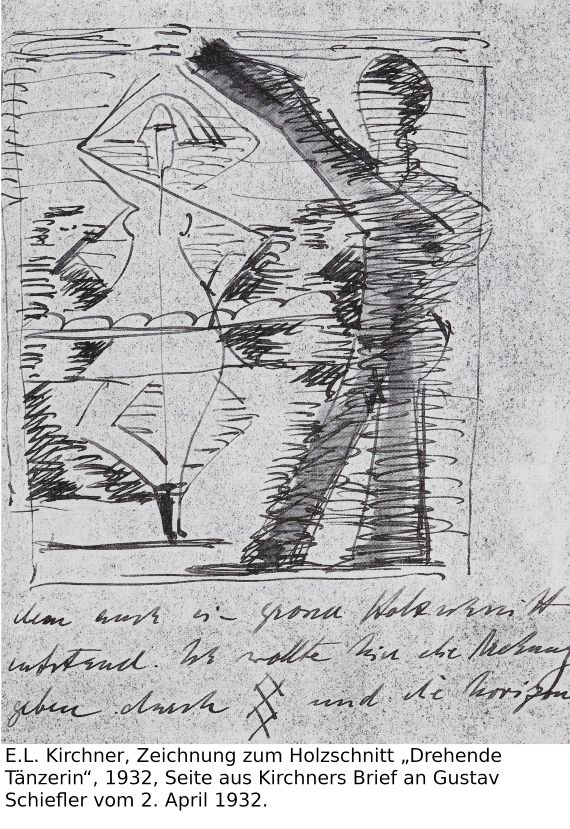 dem auch ein grosser Holzschnitt
entstand. Ich wollte hier die Drehung
geben durch und die horizon
E.L. Kirchner, Zeichnung zum Holzschnitt „Drehende
Tänzerin“, 1932, Seite aus Kirchners Brief an Gustav
Schiefler vom 2. April 1932.